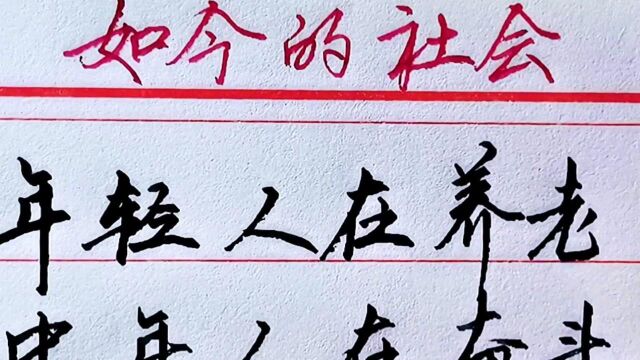 如今的社会
年轻人在养老
中年人在奋斗